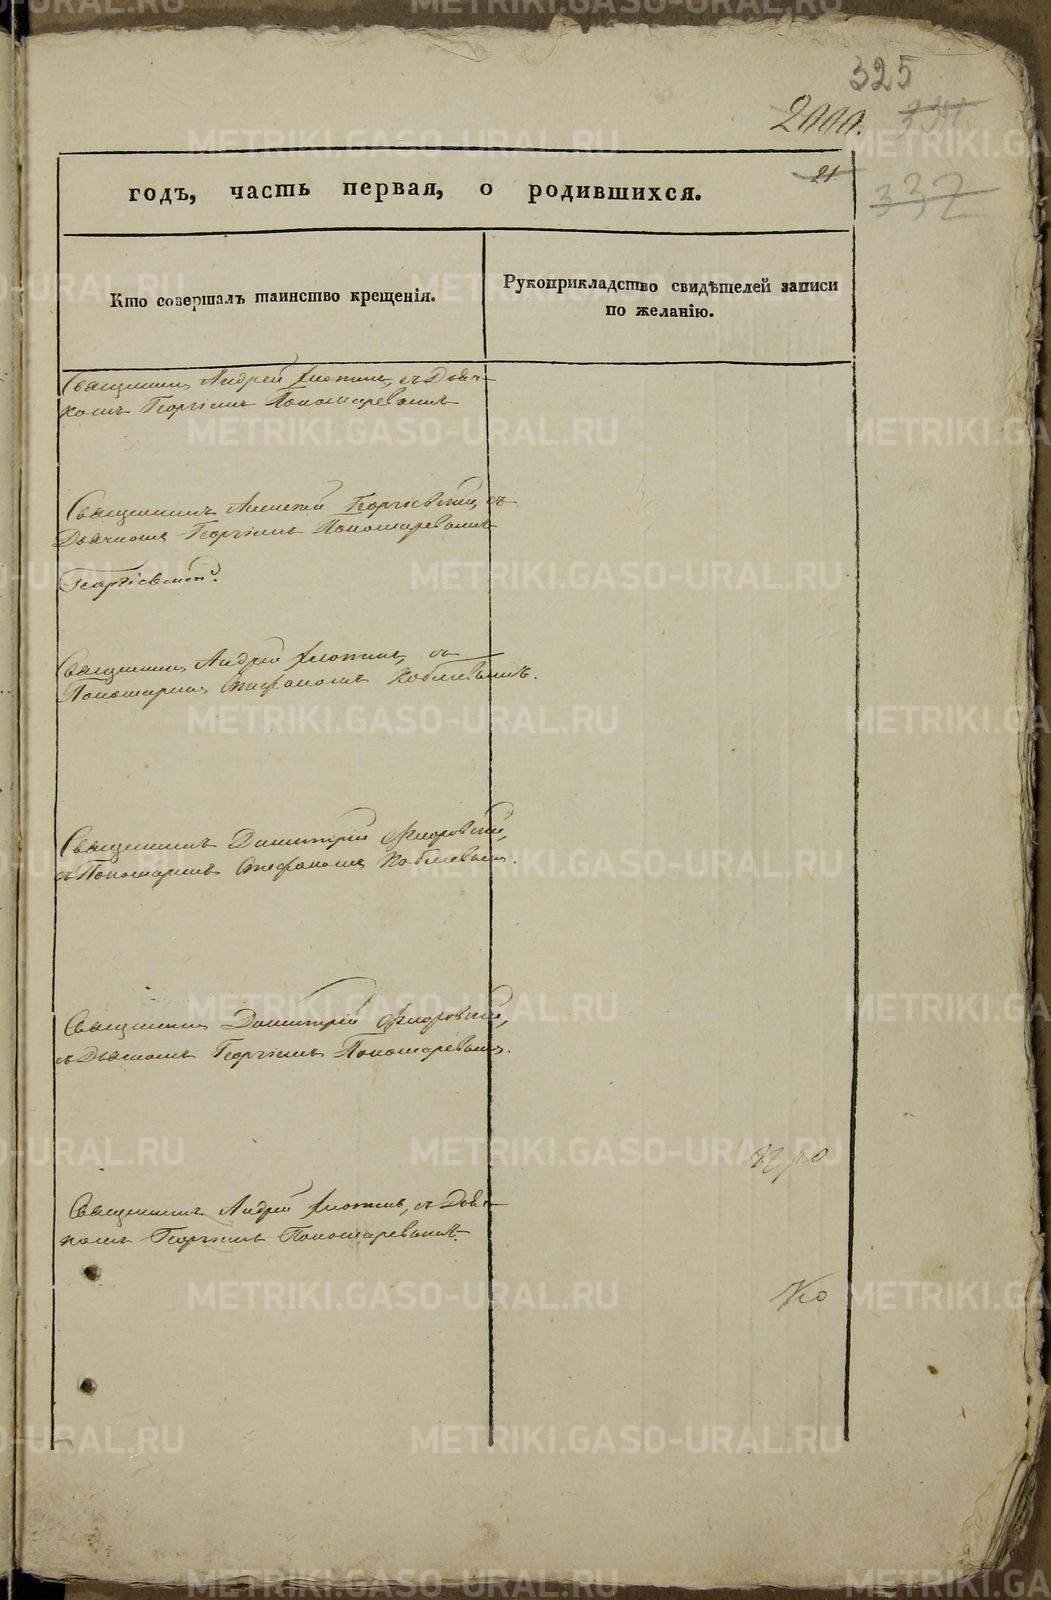 325
2000.
334
годъ, часть первая, о родившихся.
21
337
Кто совершалъ таинство крещенія.
Рукоприкладство свидѣтелей записи
по желанію.
Священникъ Андрей съ Дьяч-
комъ Георгіемъ Пономаревымъ
Священникъ Алексѣй Георгіевскій, съ
Дьячкомъ Георгіемъ Пономаревымъ
Георгіевскій
Священникъ Андрей съ
Пономаремъ Стефаномъ
Священникъ Димитрій Флоровскій,
съ Пономаремъ Стефаномъ
Священникъ Димитрій Флоровскій,
съ Дьячкомъ Георгіемъ Пономаревымъ.
Священникъ Андрей съ Дьяч-
комъ Георгіемъ Пономаревымъ.
METRIKI.GASO-URAL.RU